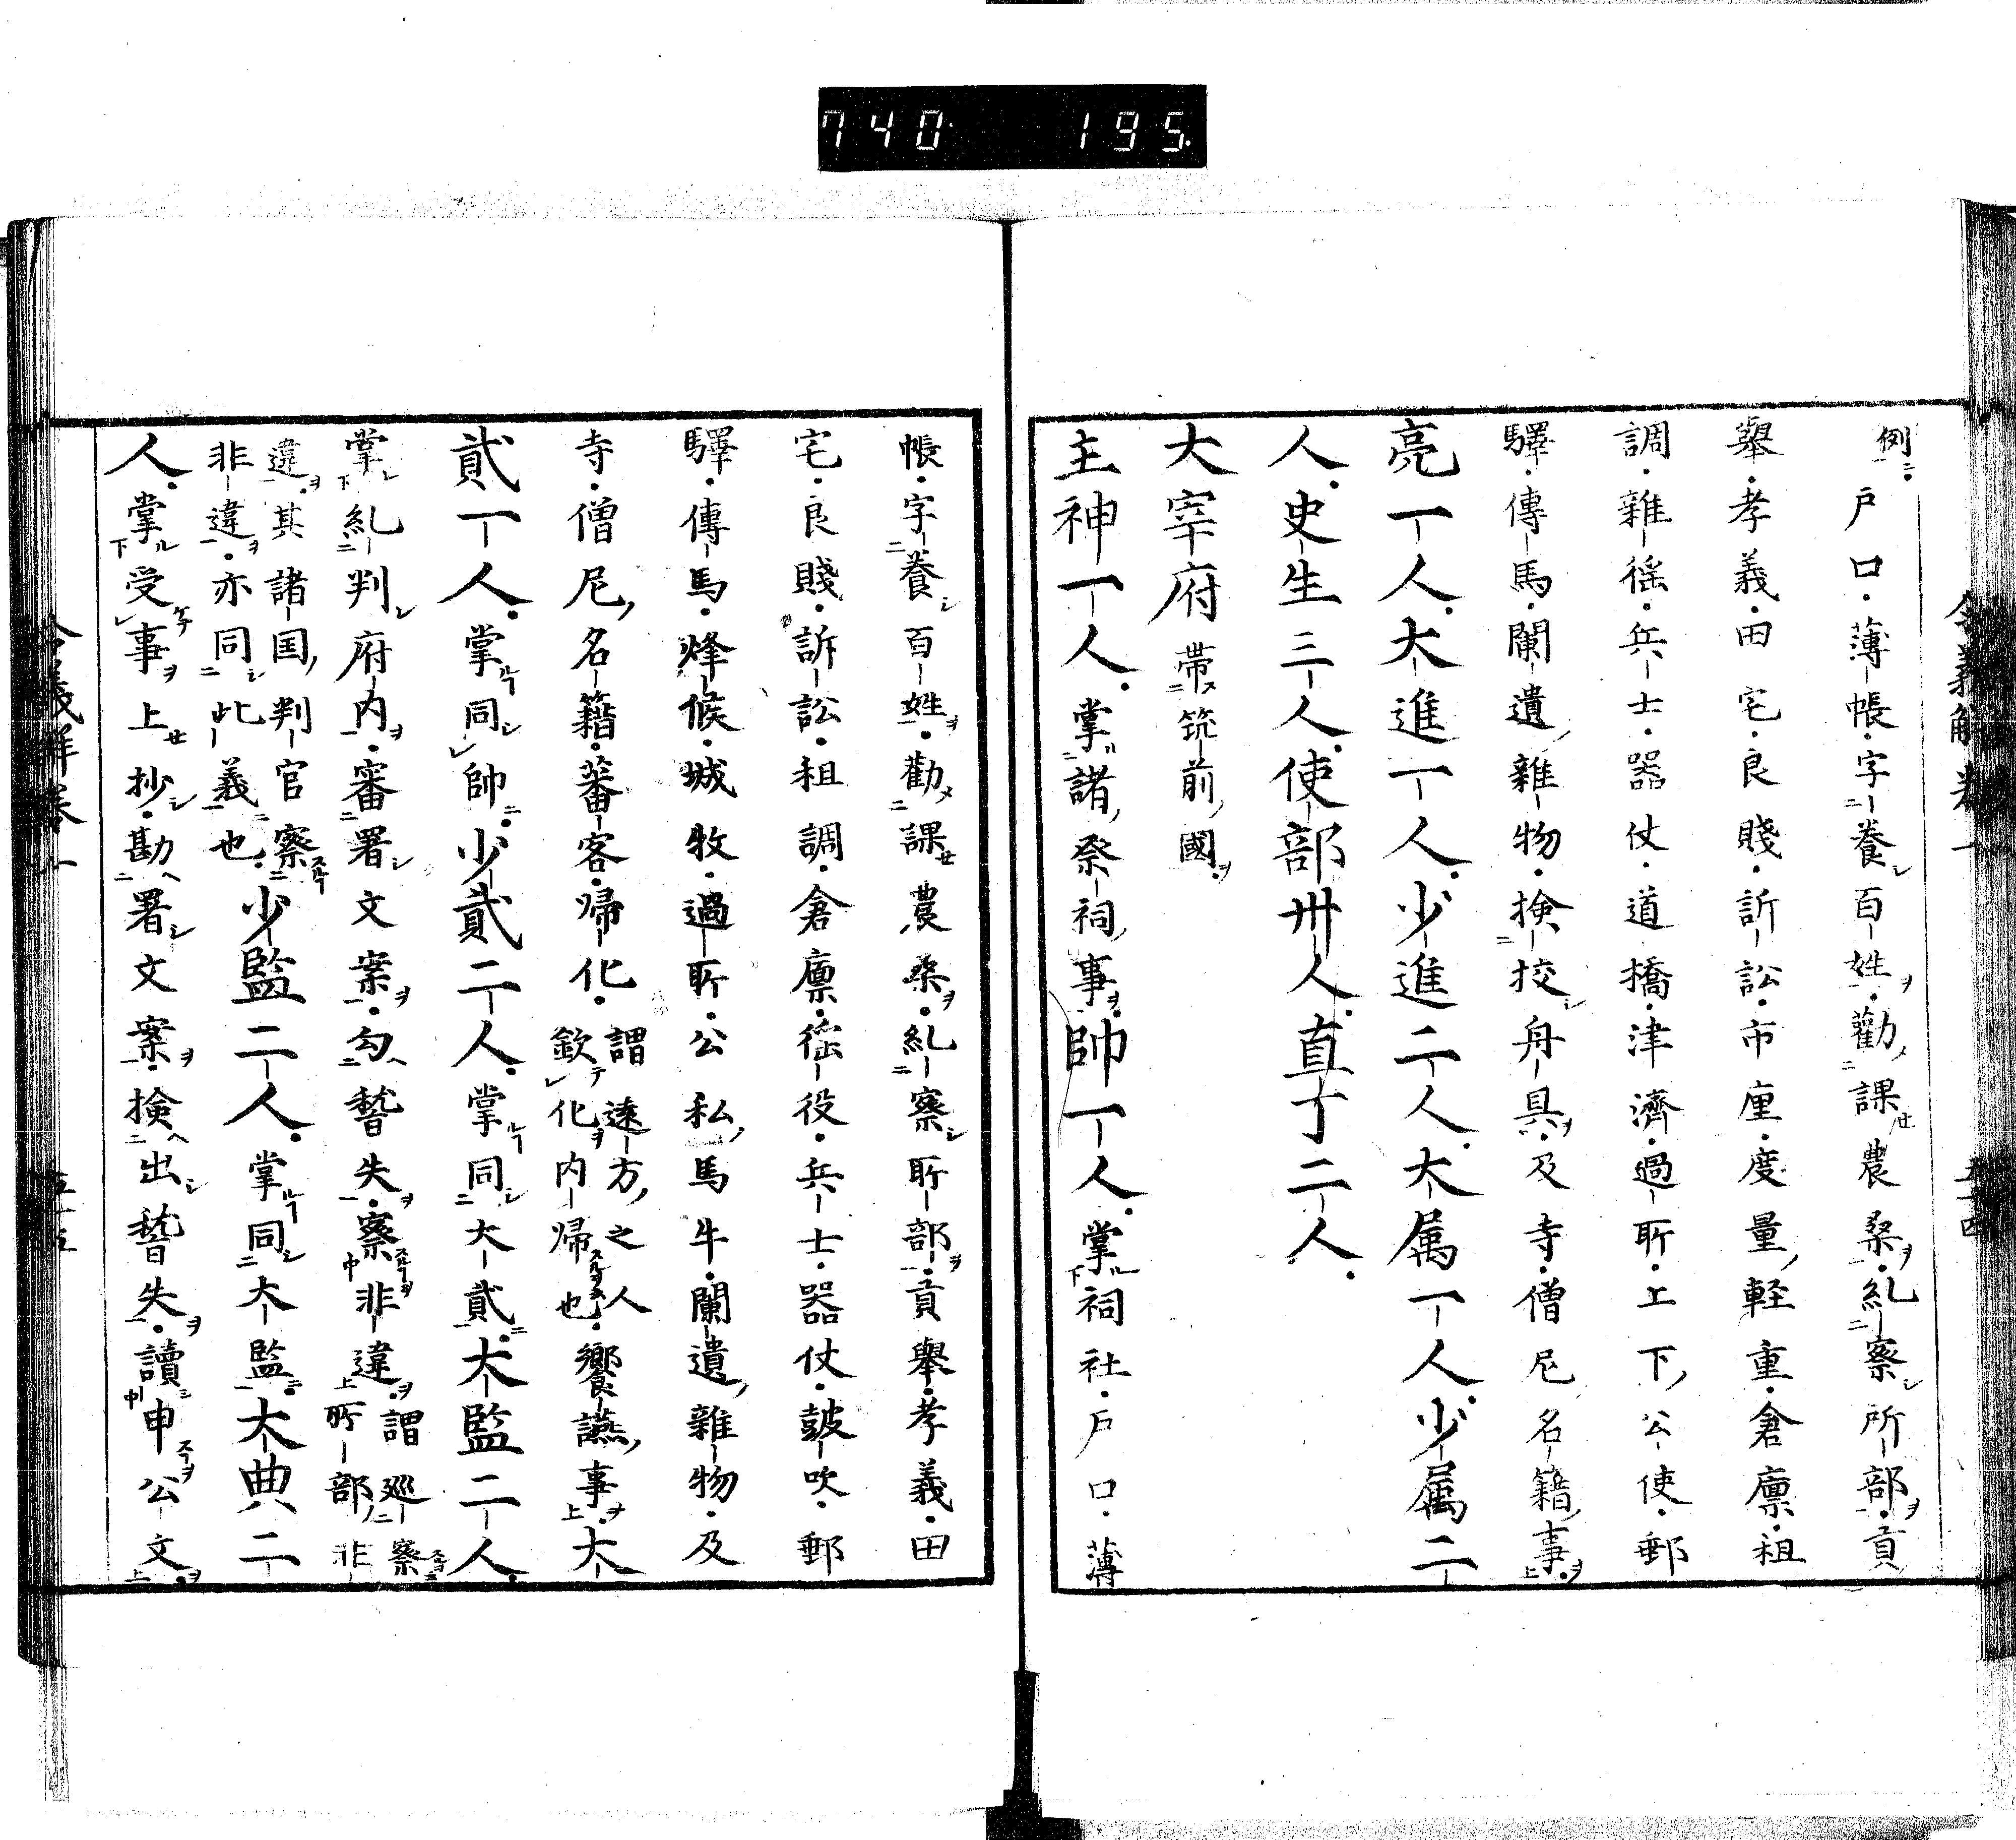 740 195
例 戸口薄帳字養百姓勸課農桑糺察所部貢
舉孝義田宅良賤訴訟市厘度量軽重倉廪租
調雜徭兵士器仗道橋津濟過所上下公使郵
驛傳馬闌遺雜物撿挍舟具及寺僧尼名籍事
亮一人大進一人少進二人大属一人少属二
人史生三人使部卅人直丁二人
大宰府帶筑前國
主神一人掌諸祭祠事帥一人掌祠社戸口薄
帳字養百姓勸課農桑糺察所部貢舉孝義田
宅良賤訴訟租調倉廪徭役兵士器仗鼓吹郵
驛傳馬烽候城牧過所公私馬牛闌遺雜物及
寺僧尼名籍蕃客歸化謂遠方之人欽化内帰也饗讌事大
貳一人掌同帥少貳二人掌同大貳大監二人
掌糺判府内審署文案勾稽失察非違謂巡察所部非
違其諸国判官察非違亦同此義也少監二人掌同大監大典二
人掌受事上抄勘署文案撿出稽失讀申公文